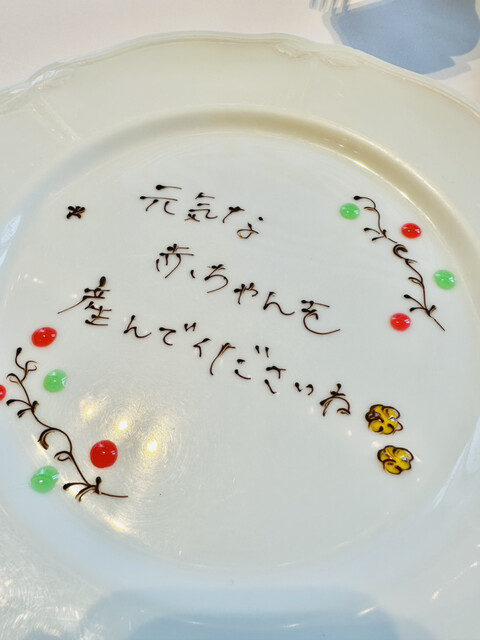 元気な
赤ちゃんを
産んでくださいね